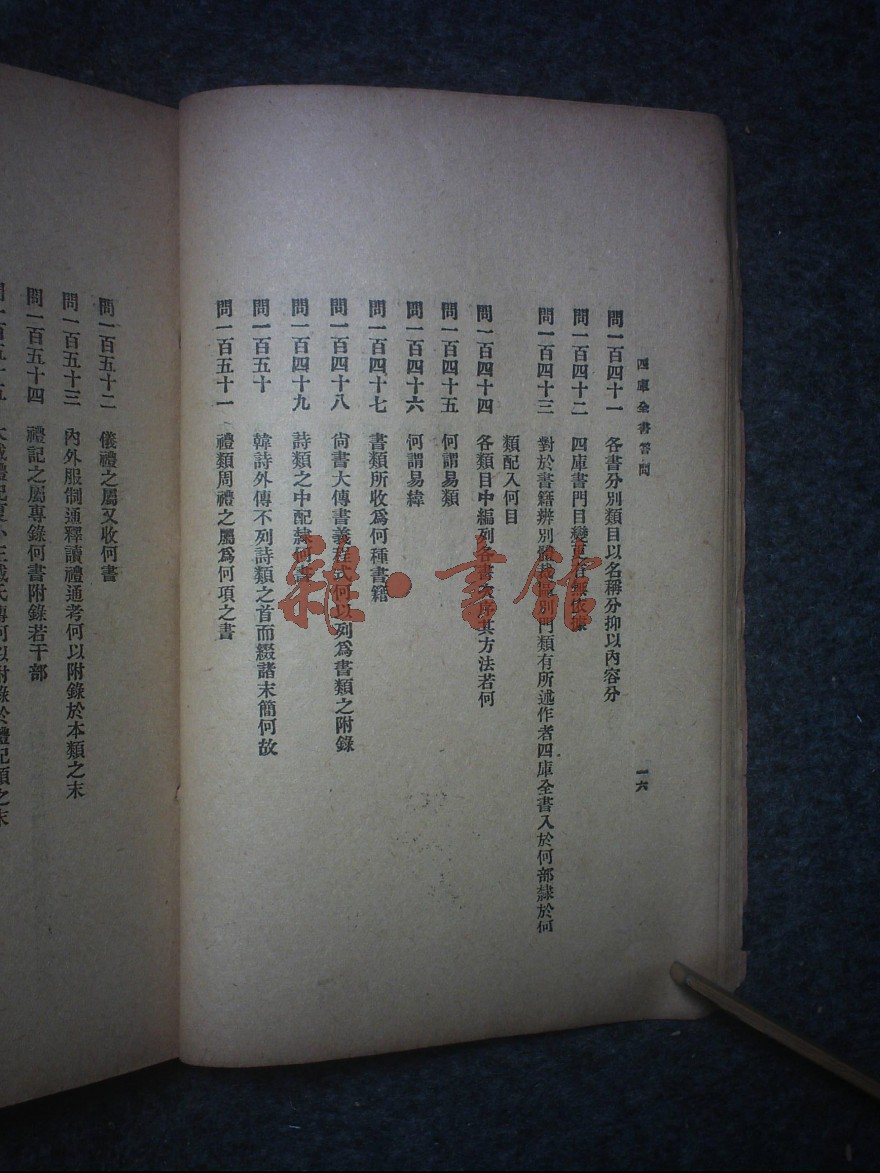 四庫全書答問
一六
問一百四十一　各書分別類目以名稱分抑以內容分
問一百四十二　四庫書門目變更有無依據
問一百四十三　對於書籍辨別體裁區別門類有所述作者四庫全書入於何部隸於何
類配入何目
問一百四十四　各類目中編列各書次序其方法若何
問一百四十五　何謂易類
問一百四十六　何謂易緯
問一百四十七　書類所收爲何種書籍
問一百四十八　尚書大傳書義程式何以列爲書類之附錄
問一百四十九　詩類之中配隸何書
問一百五十　韓詩外傳不列詩類之首而綴諸末簡何故
問一百五十一　禮類周禮之屬爲何項之書
問一百五十二　儀禮之屬又收何書
問一百五十三　內外服制通釋讀禮通考何以附錄於本類之末
問一百五十四　禮記之屬專錄何書附錄若干部
雜·書館